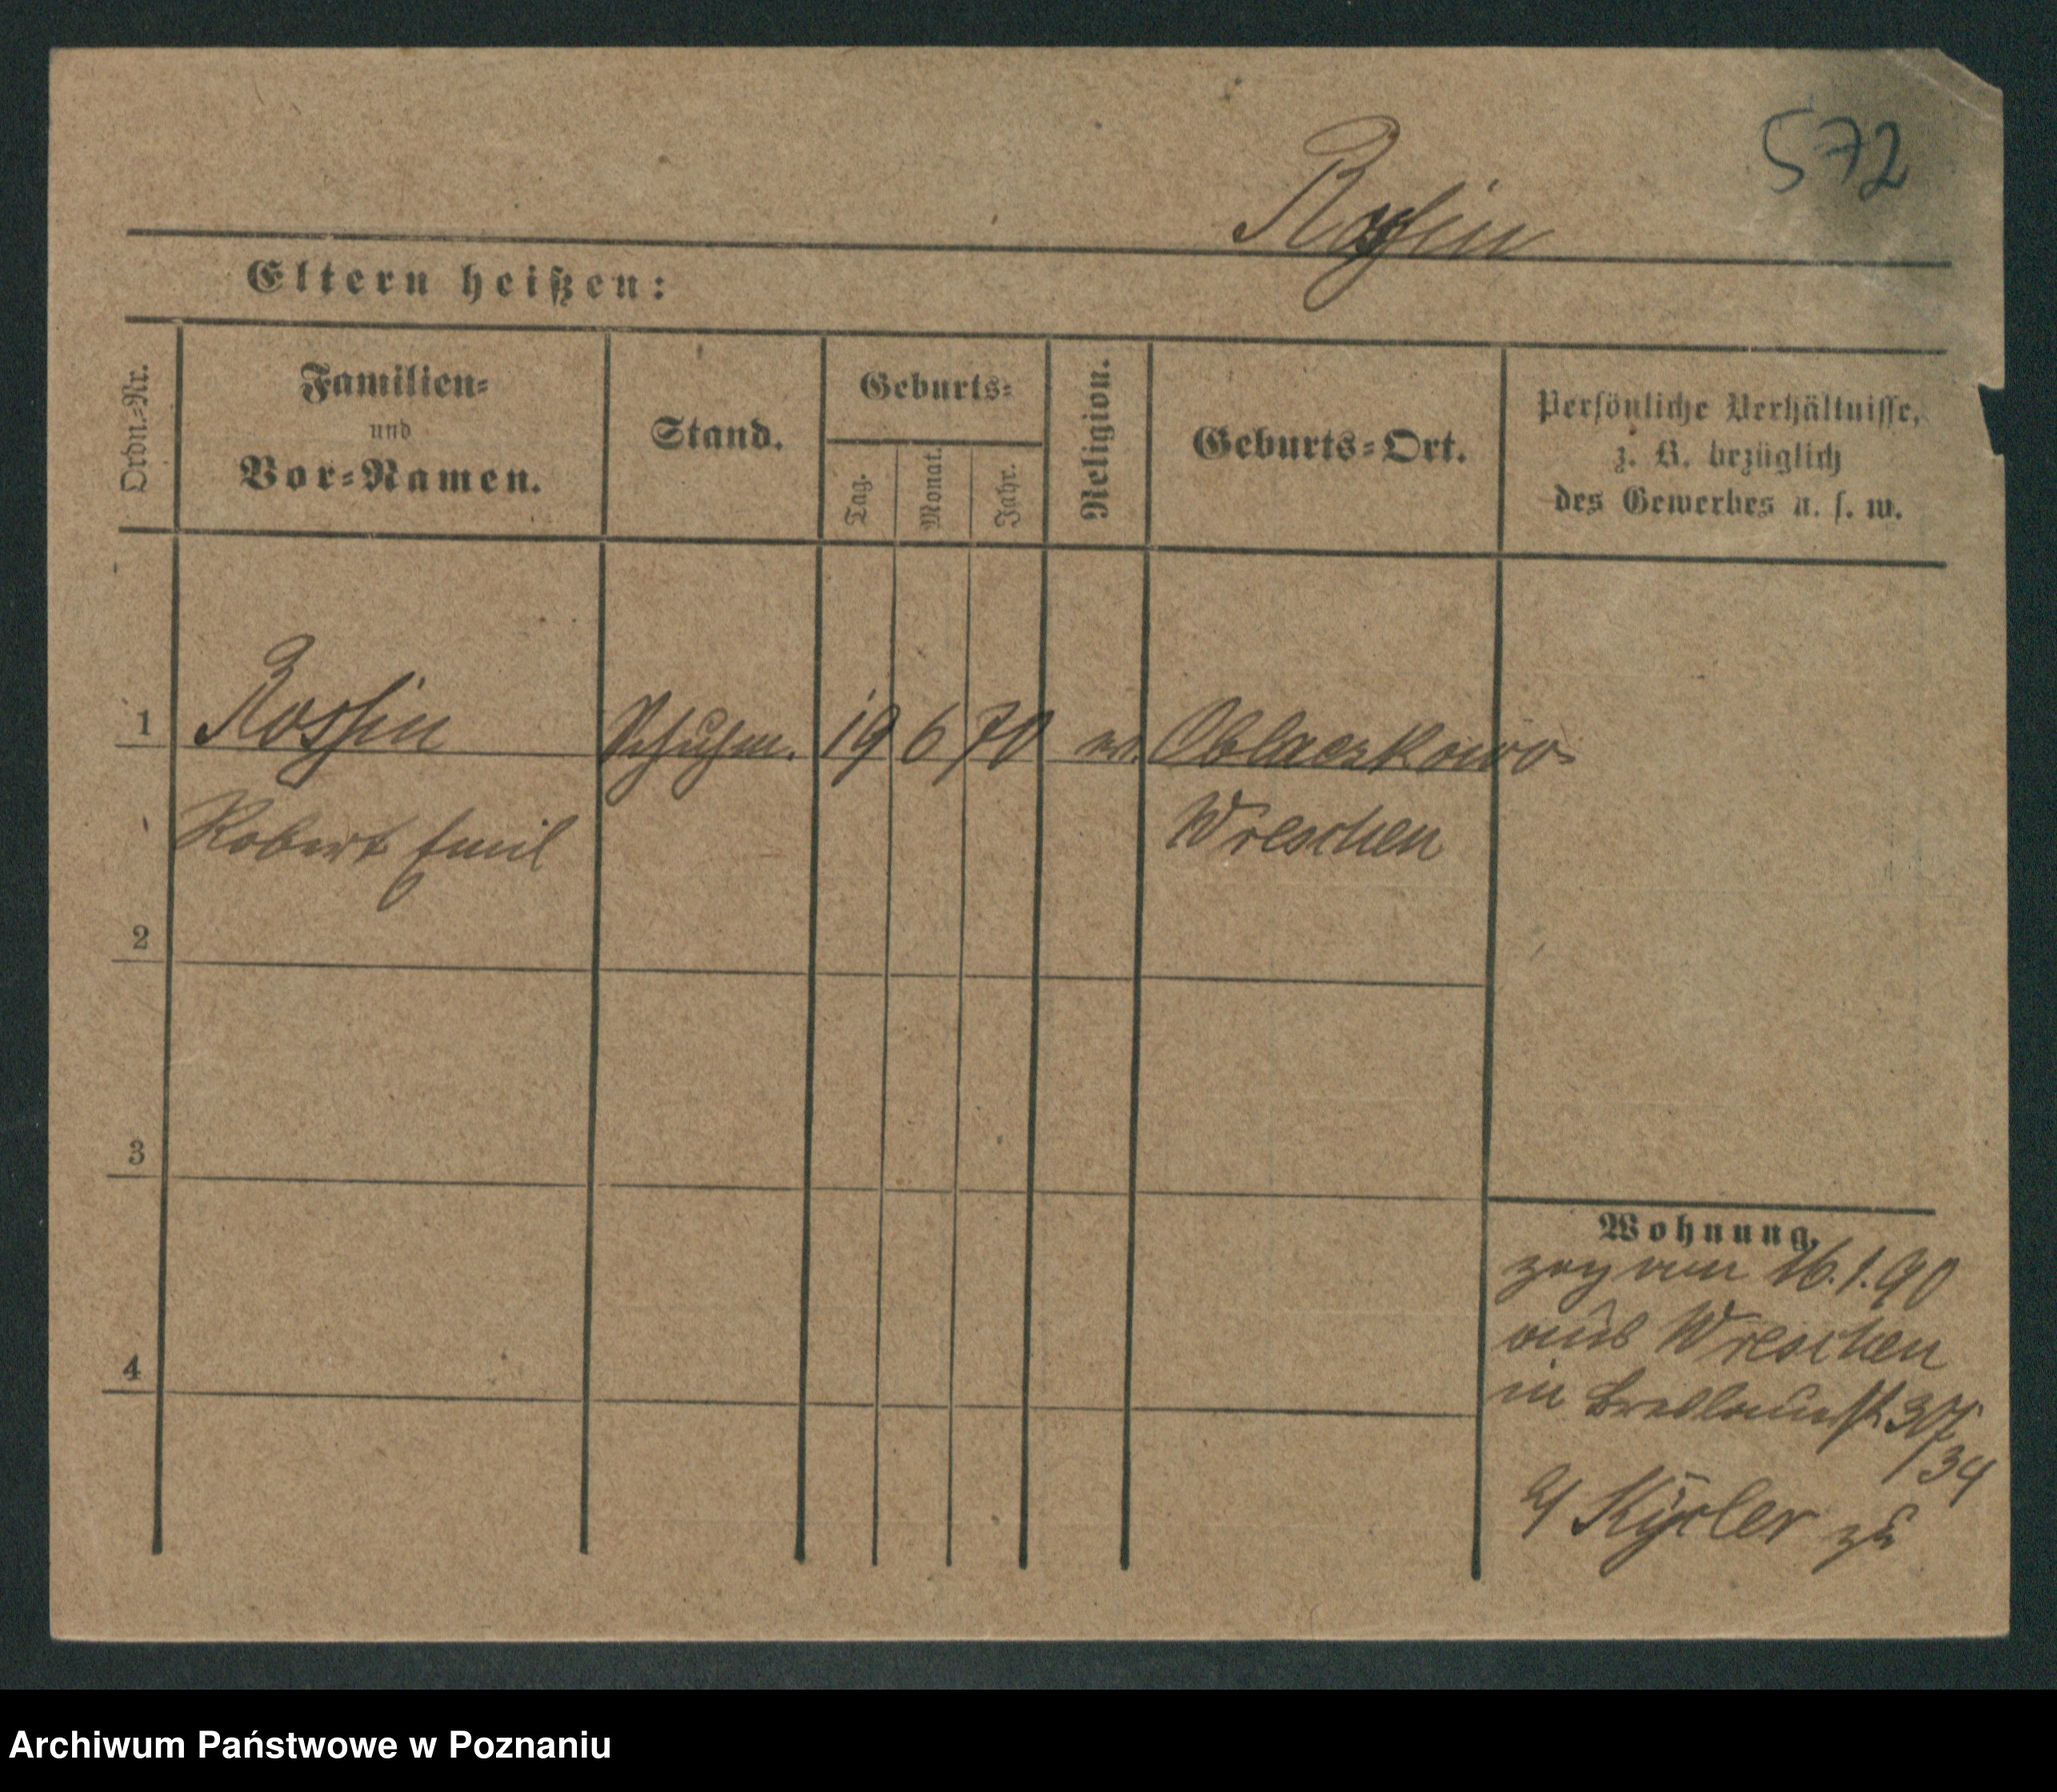 572
Rossin
Eltern heißen:
Ordn.-Nr.
Familien-
und
Vor-Namen.
Stand.
Geburts-
Tag.
Monat.
Jahr.
Religion.
Geburts-Ort.
Persönliche Verhältnisse,
z. B. bezüglich
des Gewerbes u. s. w.
1 Rossin Schuhm. 19 6 70 ev. Oblaczkowo
Robert Emil Wreschen
2
3
4
Wohnung.
zog am 16.1.90
aus Wreschen
in Breslauerst 37
/34
zu
Archiwum Państwowe w Poznaniu